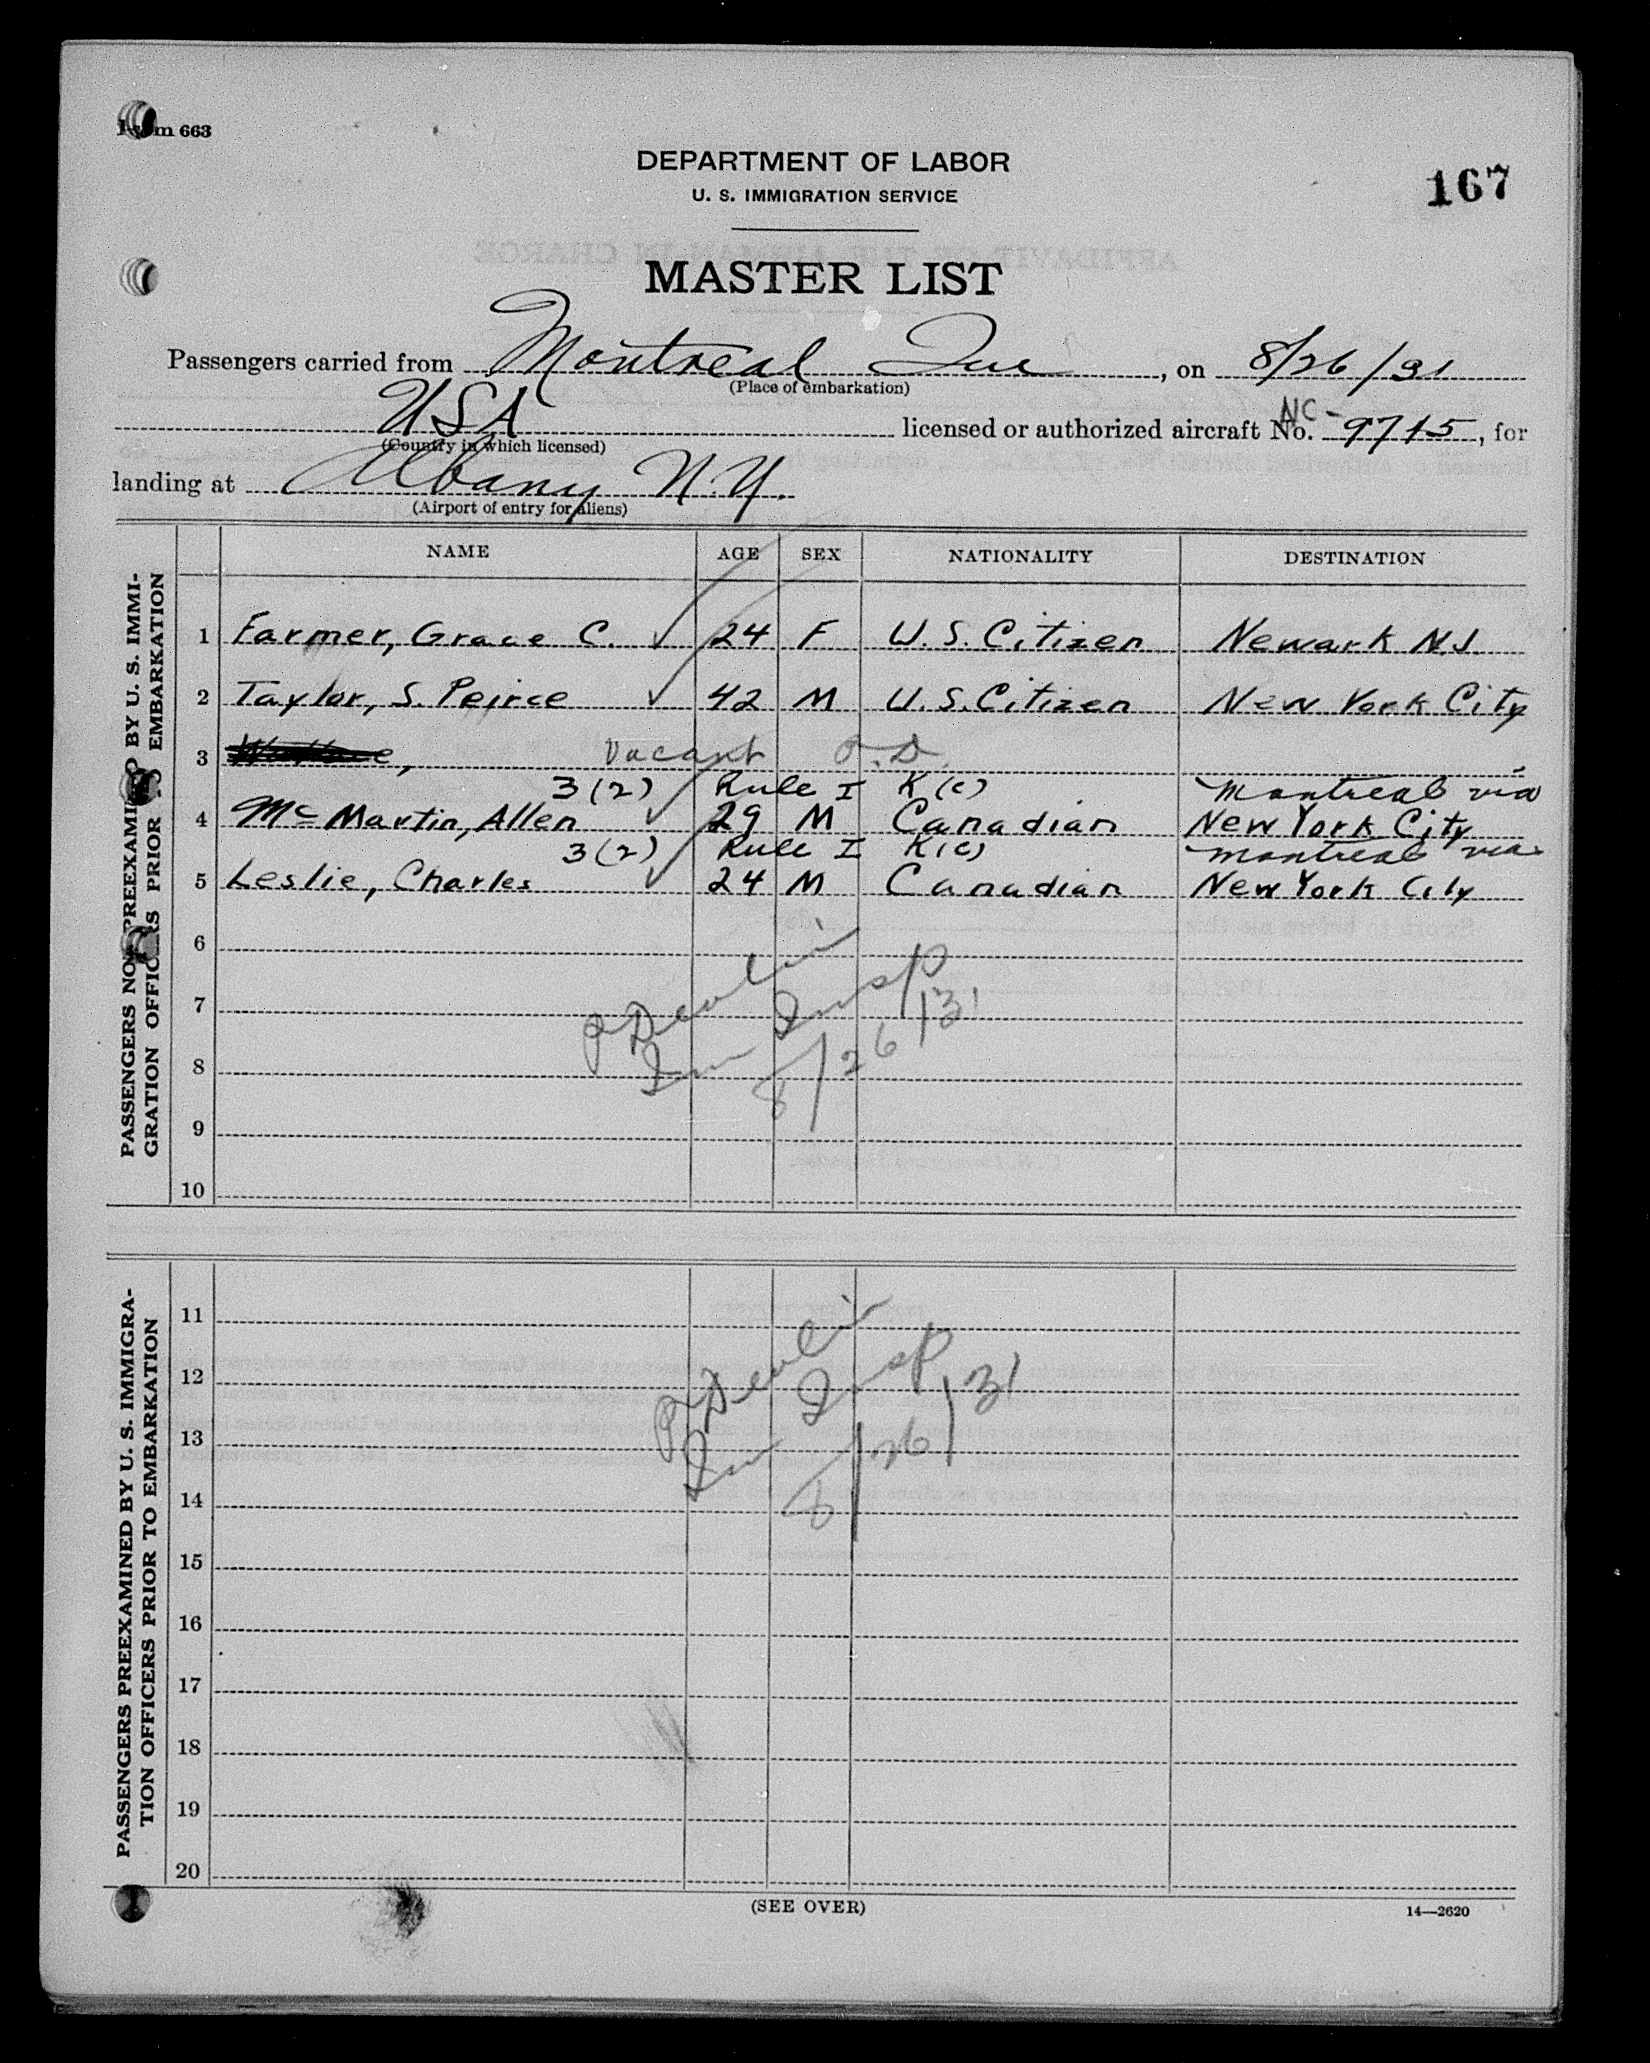 Form 663
DEPARTMENT OF LABOR
U. S. IMMIGRATION SERVICE
167
MASTER LIST
Passengers carried from Montreal Que, on 8/26/31
(Place of embarkation)
USA licensed or authorized aircraft No. NC-9715, for
(Country in which licensed)
landing at Albany N.Y.
(Airport of entry for aliens)
NAME AGE SEX NATIONALITY DESTINATION
PASSENGERS NOT PREEXAMINED BY U. S. IMMI-
GRATION OFFICERS PRIOR TO EMBARKATION
1 Farmer, Grace C. ✓ 24 F U.S. Citizen Newark N.J.
2 Taylor, S. Peirce ✓ 42 M U.S. Citizen New York City
3 Vacant P.D.
3(2) Rule I K(c) Montreal via
4 McMartin, Allen ✓ 29 M Canadian New York City
3(2) Rule I K(c) Montreal via
5 Leslie, Charles ✓ 24 M Canadian New York City
6
7
8
9
10
P Devlin
Im Insp
8/26/31
PASSENGERS PREEXAMINED BY U. S. IMMIGRA-
TION OFFICERS PRIOR TO EMBARKATION
11
12
13
14
15
16
17
18
19
20
P Devlin
Im Insp
8/26/31
(SEE OVER)
14—2620